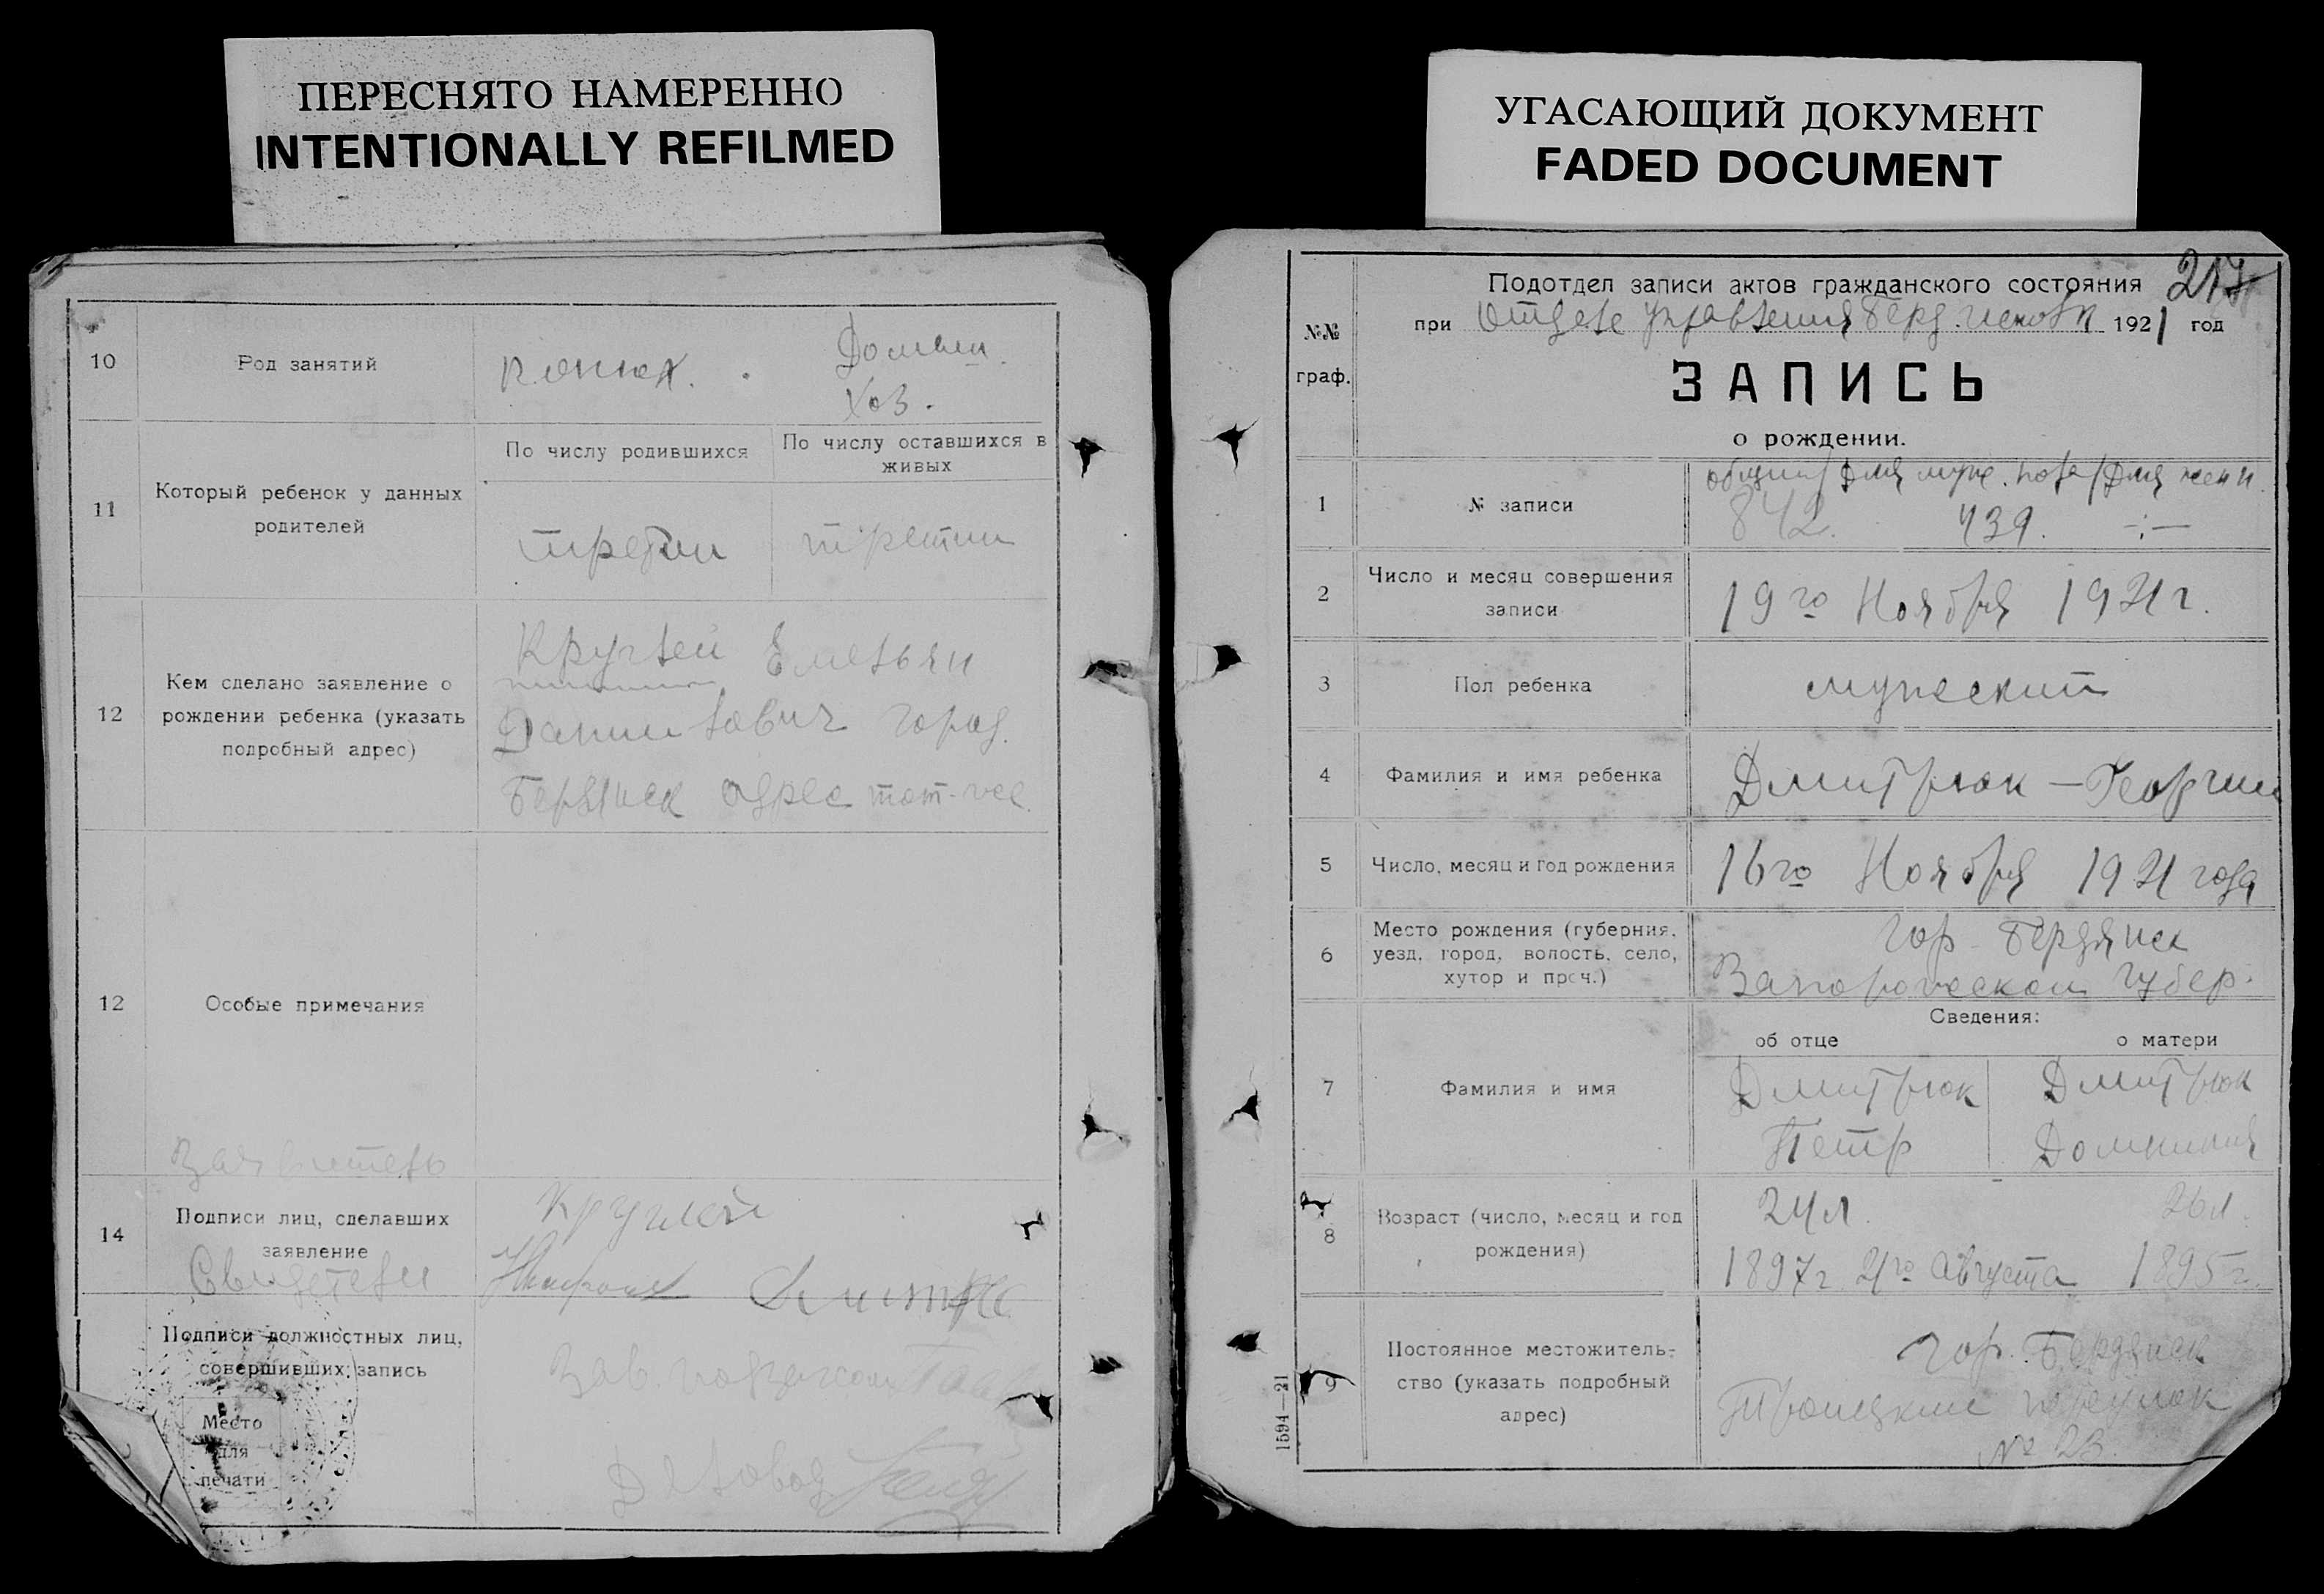 ПЕРЕСНЯТО НАМЕРЕННО
INTENTIONALLY REFILMED
10
Род занятий
конюх.
Домаш.
Хоз.
11
Который ребенок у данных
родителей
По числу родившихся
По числу оставшихся в
живых
третий
третий
12
Кем сделано заявление о
рождении ребенка (указать
подробный адрес)
Круглей Емельян
Данилович город.
Бердянск адрес тот-же
12
Особые примечания
Заявитель
14
Подписи лиц, сделавших
заявление
Свидетели
Круглей
Подписи должностных лиц,
совершивших запись
Зав. подотделом
Деловод
Место
для
печати
УГАСАЮЩИЙ ДОКУМЕНТ
FADED DOCUMENT
217
№№
граф.
Подотдел записи актов гражданского состояния
при Отделе Управления Берд. 1921 год
ЗАПИСЬ
о рождении.
1
№ записи
общий / для муж. пола / для женн.
842. 439. -:-
2
Число и месяц совершения
записи
19го Ноября 1921 г.
3
Пол ребенка
мужеский
4
Фамилия и имя ребенка
Дмитрюк — Георгий
5
Число, месяц и год рождения
16го Ноября 1921 года
6
Место рождения (губерния,
уезд, город, волость, село,
хутор и проч.)
гор. Бердянск
Запорожской губер.
Сведения:
об отце
о матери
7
Фамилия и имя
Дмитрюк
Петр
Дмитрюк
Домникия
8
Возраст (число, месяц и год
рождения)
24 л. 26 л.
1897 г 21го Августа 1895 г.
9
Постоянное местожитель-
ство (указать подробный
адрес)
гор. Бердянск
Троицкий переулок
№ 23.
1594—21